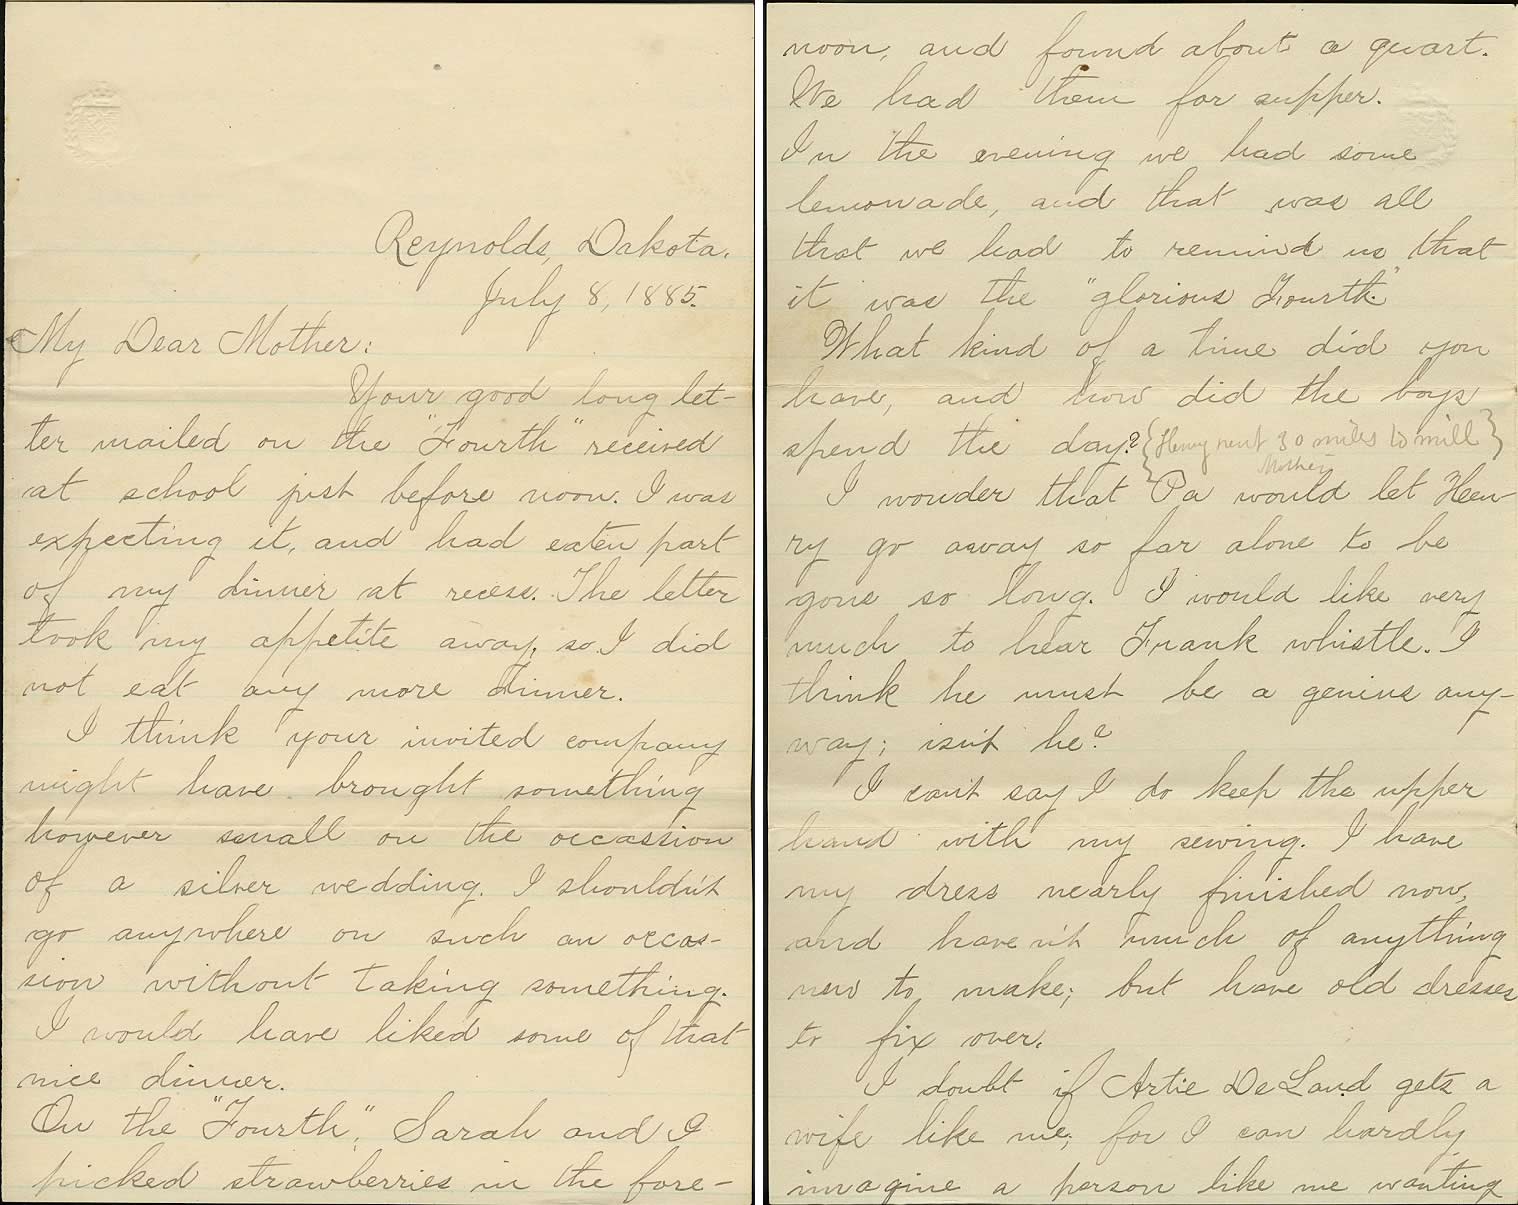 Reynolds, Dakota.
July 8, 1885.
My Dear Mother:
Your good long let-
ter mailed on the "Fourth" received
at school just before noon. I was
expecting it, and had eaten part
of my dinner at recess. The letter
took my appetite away, so I did
not eat any more dinner.
I think your invited company
might have brought something
however small on the occassion
of a silver wedding. I shouldn't
go anywhere on such an occas-
sion without taking something.
I would have liked some of that
nice dinner.
On the "Fourth", Sarah and I
picked strawberries in the fore-
noon, and found about a quart.
We had them for supper.
In the evening we had some
lemonade, and that was all
that we had to remind us that
it was the "glorious Fourth."
What kind of a time did you
have, and how did the boys
spend the day? {Henry went 30 miles to mill}
Mother
I wonder that Pa would let Hen-
ry go away so far alone to be
gone so long. I would like very
much to hear Frank whistle. I
think he must be a genius any-
way; isn't he?
I can't say I do keep the upper
hand with my sewing. I have
my dress nearly finished now,
and haven't much of anything
new to make; but have old dresses
to fix over.
I doubt if Artie DeLand gets a
wife like me; for I can hardly
imagine a person like me wanting